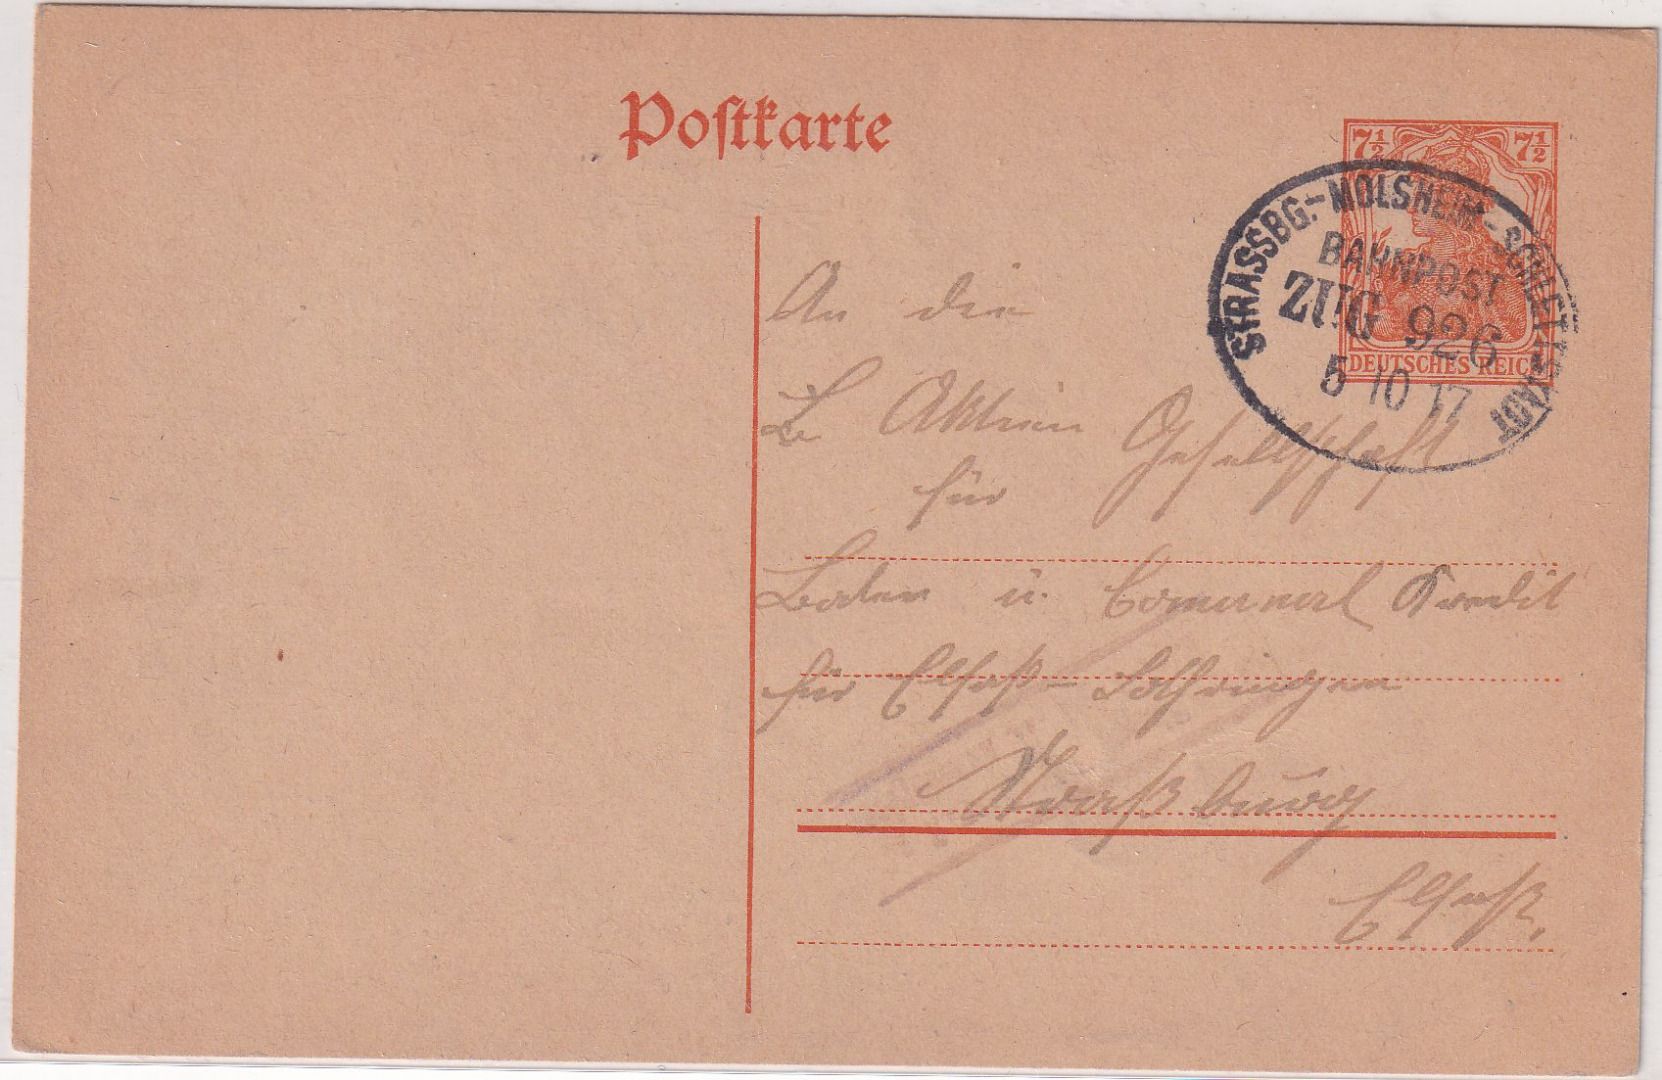 Postkarte
7½ 7½
DEUTSCHES REICH
STRASSBG.-MOLSHEIM-SCHLETTSTADT
BAHNPOST
ZUG 926
5 10 17
An die
Aktien Gesellschaft
für
Boden u. Comunal Kredit
für Elsaß-Lothringen
Straßburg
Elsaß.